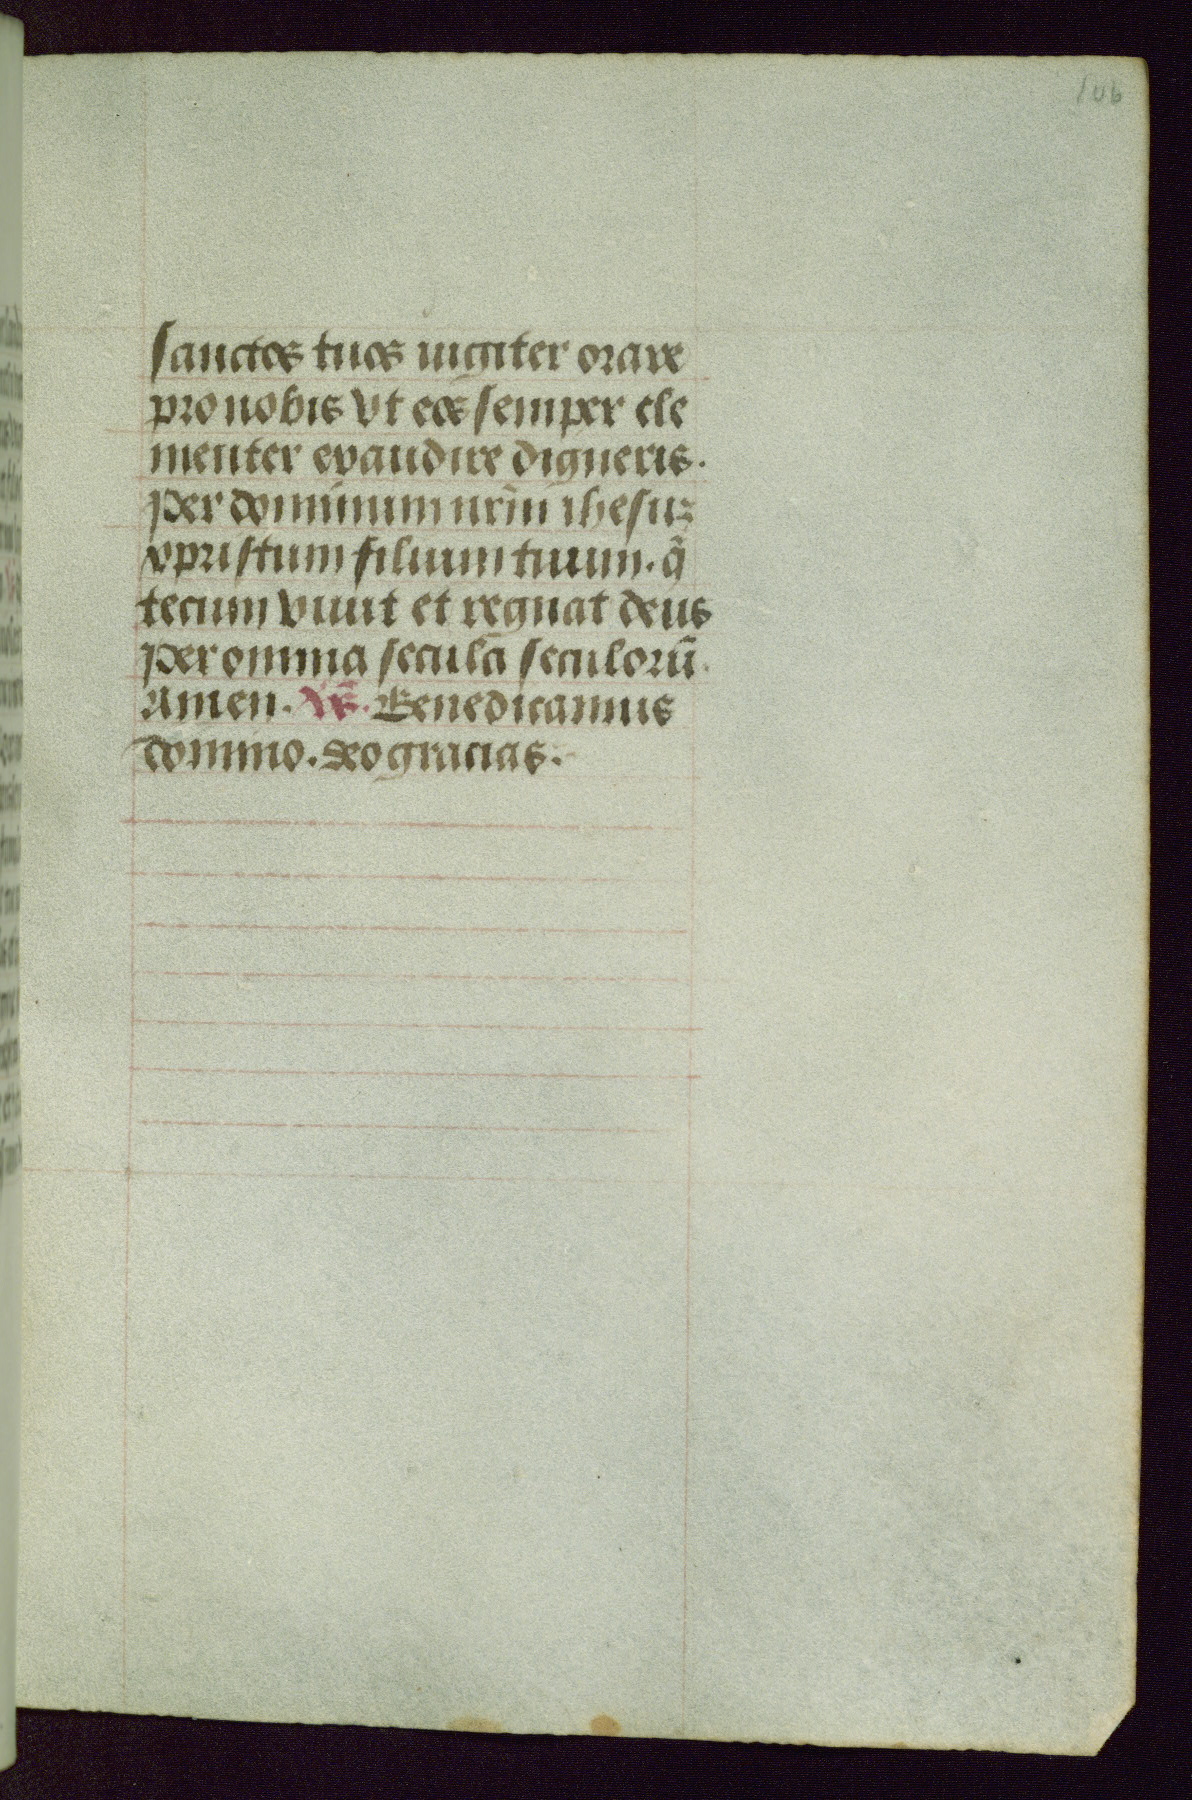 106
sanctos tuos iugiter orare
pro nobis vt eos semper cle
menter exaudire digneris.
Per dominum nr̄m ihesuz
xpristum filium tuum. q̄
tecum viuit et regnat deus
per omnia secula seculorū.
Amen. v̄s. Benedicamus
domino. deo gracias.